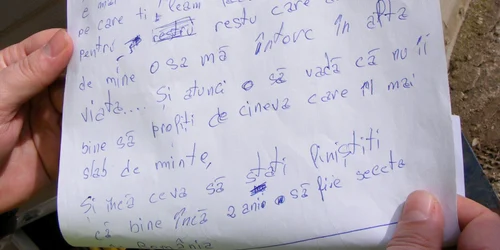 e mai
pe care ti
pentru restu care
de mine o sa mă întorc în alta
viata.... Și atunci o să vadă că nu ii
bine să profiți de cineva care îi mai
slab de minte,
Și încă ceva să stați liniștiți
că bine încă 2 ani o să fie selecta
România